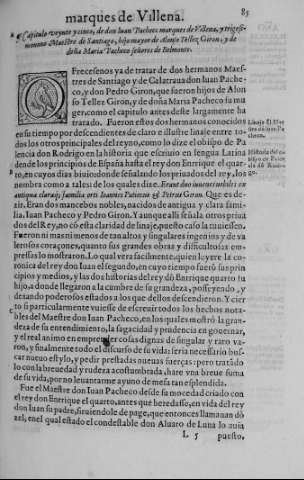 marques de Villena. 85
Capitulo veynte y cinco, de don Iuan Pacheco marques de Villena, y trigesi-
momono Maestre de Santiago, hijo mayor de Alonso Tellez Giron, y de
doña Maria Pacheco señores de Belmonte.
OFrecesenos ya de tratar de dos hermanos Maes-
tres de Santiago y de Calatraua don Iuan Pache-
co, y don Pedro Giron, que fueron hijos de Alon-
so Tellez Giron, y de doña Maria Pacheco su mu
ger: como el capitulo antes deste largamente ha
tratado. Fueron estos dos hermanos conocidos
en su tiempo por descendientes de claro e illustre linaje entre to-
dos los otros principales del reyno, como lo dize el obispo de Pa-
lencia don Rodrigo en la historia que escriuio en lengua Latina
dende los principes de España hasta el rey don Enrique el quar-
to, en cuyos dias biuio: donde señalando los priuados del rey, los
nombra como a tales de los quales dize. Erant duo iuuenes nobiles ex
antiqua claraq; familia orti Ioannes Paciecus & Petrus Giron. Que es de-
zir. Eran dos mancebos nobles, nacidos de antigua y clara fami-
lia, Iuan Pacheco y Pedro Giron. Y aunque alli señala otros priua
dos del Rey, no có esta claridad de linaje, puesto caso la tuuiessen.
Fueron ni mas ni menos de tan altos y singulares ingenios y de va
lerosos coraçones, quanto sus grandes obras y dificultosas em-
presas lo mostraron. Lo qual vera facilmente, quien leyere la co-
ronica del rey don Iuan el segundo, en cuyo tiempo fueró sus prin
cipios y medios, y las dos historias del rey dó Enrique quarto su
hijo, a donde llegaron a la cumbre de su grandeza, posseyendo, y
dexando poderosos estados a los que dellos descendieron. Y cier
to si particularmente vuiesse de escreuir todos los hechos nota-
bles del Maestre don Iuan Pacheco, en los quales mostró la gran
deza de su entendimiento, la sagacidad y prudencia en gouernar,
y el real animo en emprender cosas dignas de singular y raro va-
ron, y finalmente todo el discurso de su vida: seria necesario bus-
car nueuo estylo, y pedir prestadas nueuas fuerças: pero tratado
lo con la breuedad y rudeza acostumbrada, hare vna breue suma
de su vida, por no leuantarme a yuno de mesa tan esplendida.
Fue el Maestre don Iuan Pacheco desde su mocedad criado con
el rey don Enrique el quarto, antes que heredasse, en vida del rey
don Iuan su padre, siruiendole de page, que entonces llamauan dó
zel, en el qual estado el condestable don Aluaro de Luna lo auia
L 5 puesto,